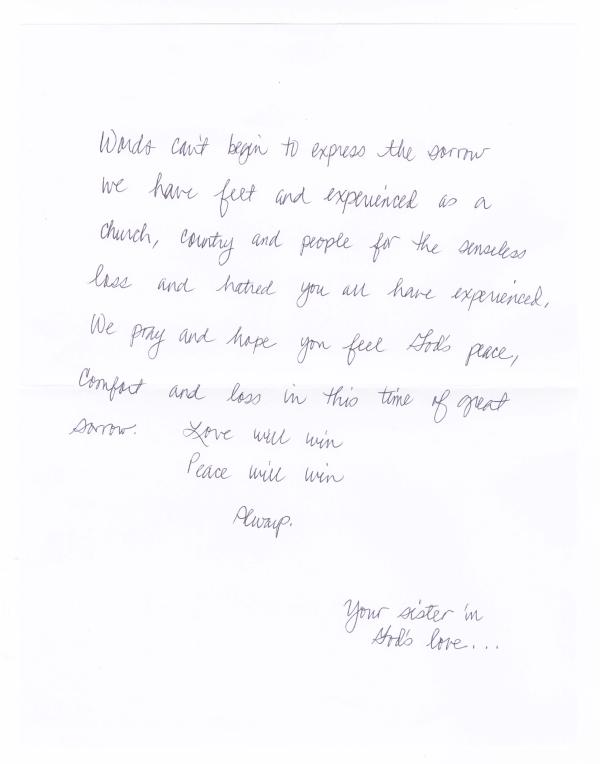 Words can't begin to express the sorrow
we have felt and experienced as a
church, country and people for the senseless
loss and hatred you all have experienced.
We pray and hope you feel God's peace,
comfort and loss in this time of great
sorrow. Love will win
Peace will win
Always.
Your sister in
God's love...